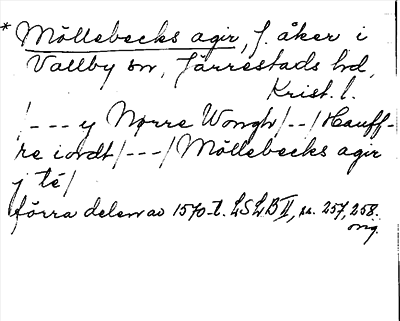 * Möllebecks agir, f. åker i
Vallby sn, Järrestads hd,
Krist. l.
/--- y Nørre Wongh /--/ Hauff-
re iordt /---/ Möllebecks agir
j té /
förra delen av 1570-t. LSLB II, s. 257, 258.
orig.